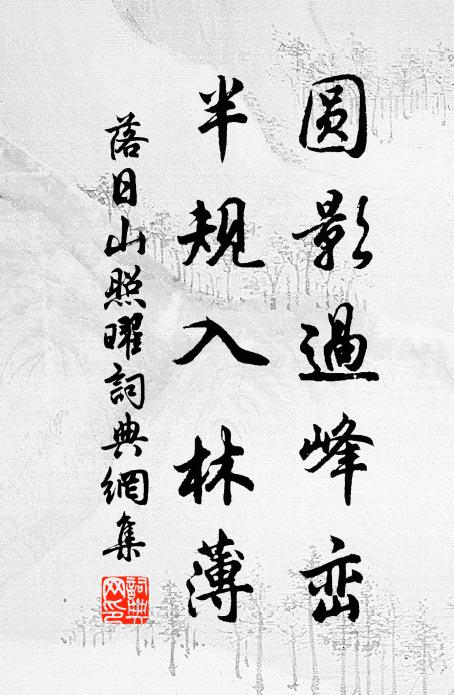 圓影過峰巒
半規入林薄
落日山照曜詞典網集
詞典網印